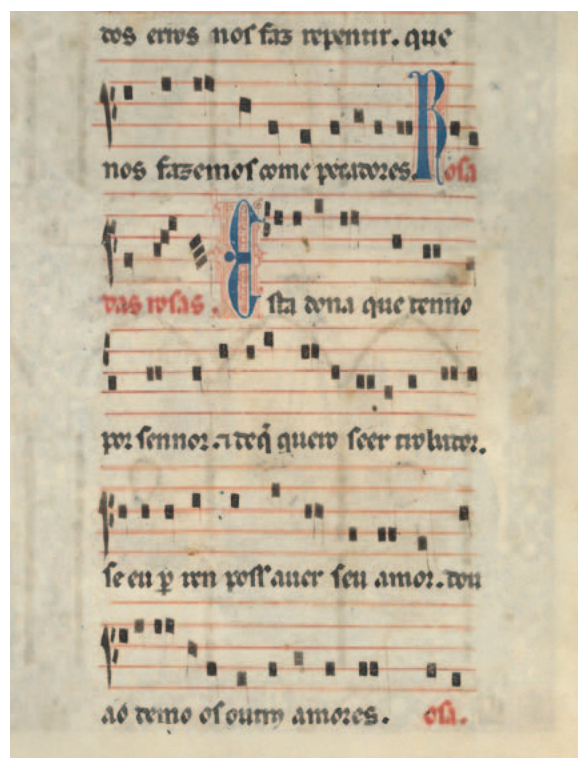 tos erros nos faz repentir. que
nos fazemos come pecadores. Rosa
das rosas. Esta dona que tenno
por sennor. ⁊ de q̄ quero seer trobador.
se eu ꝑ ren poss auer seu amor. dou
ao demo os outros amores. osa.